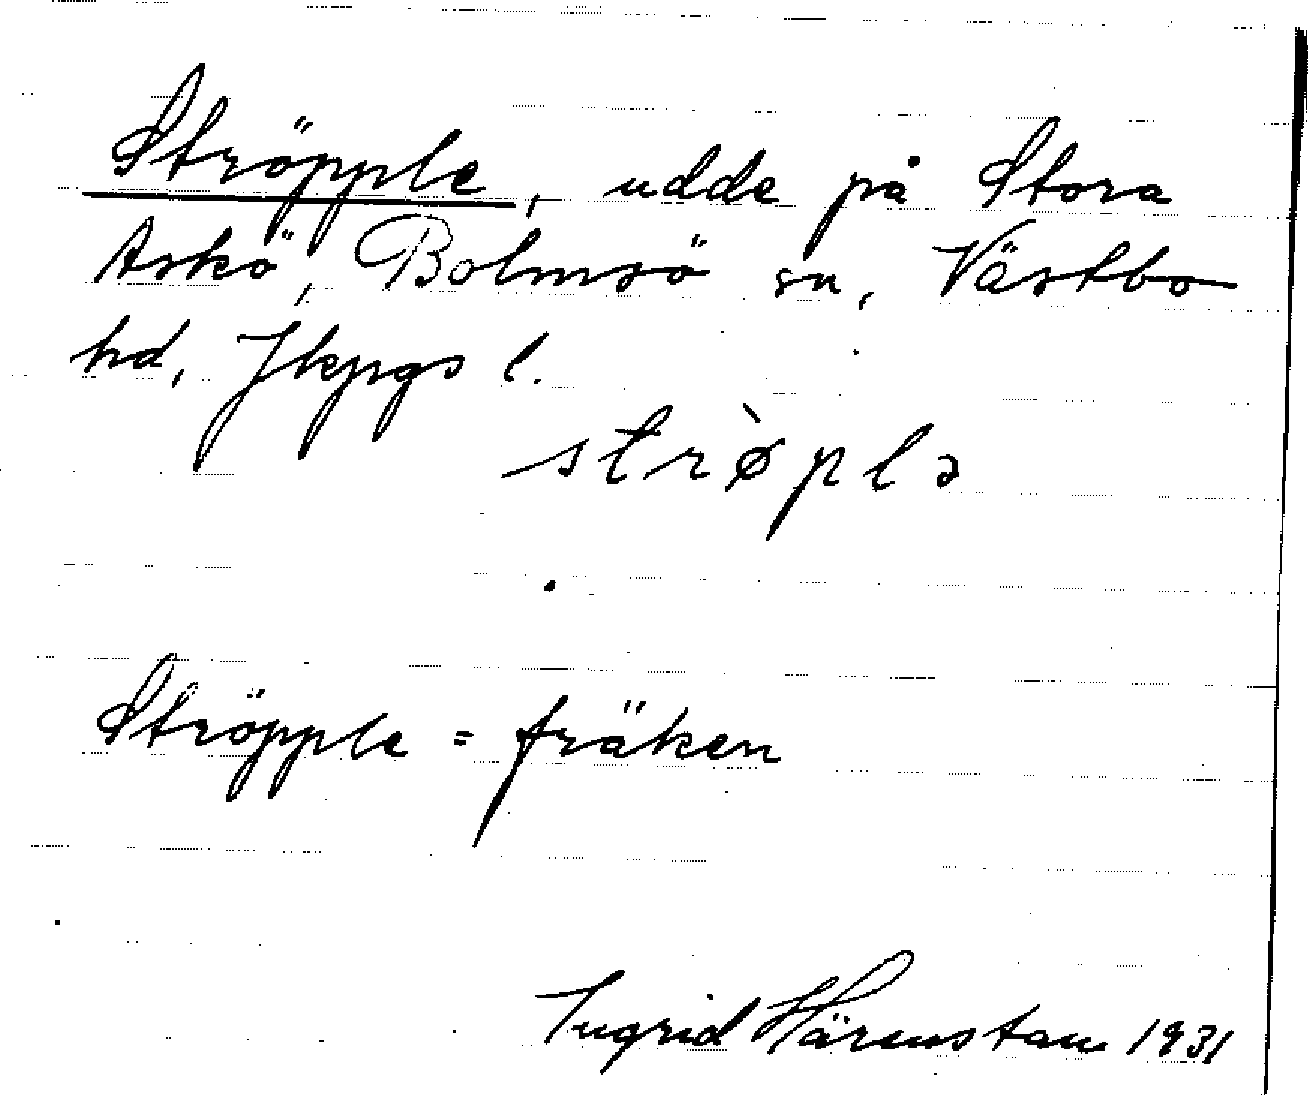 Ströpple, udde på Stora
Askö, Bolmsö sn, Västbo
hd, Jkpgs l.
strø̀plə
Ströpple = fräken
Ingrid Härenstam 1931